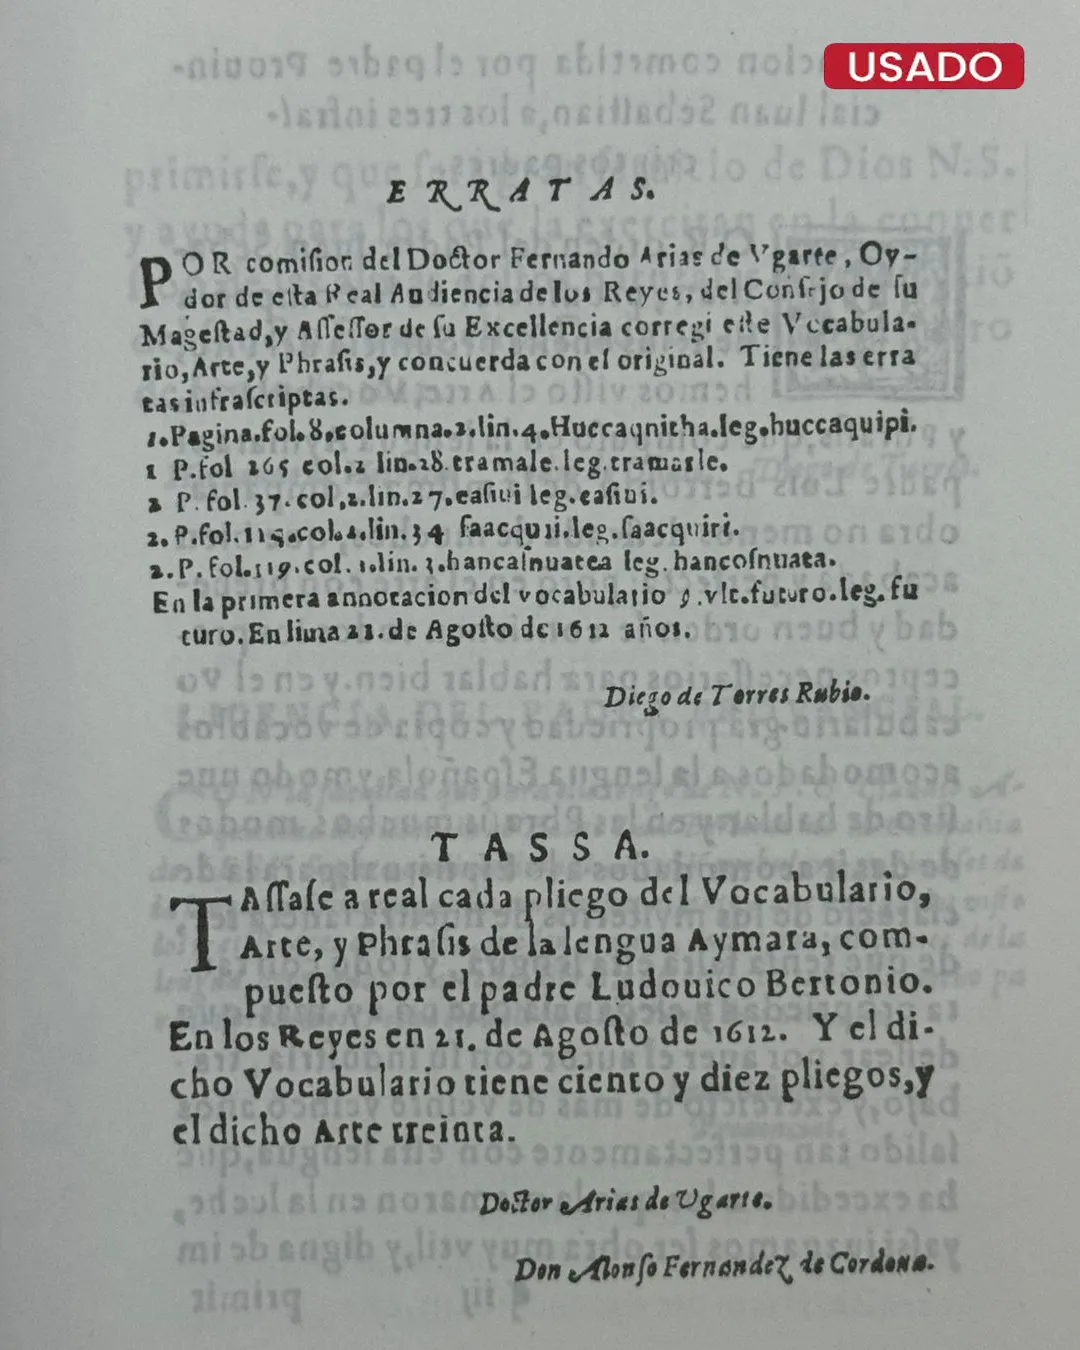 USADO
ERRATAS.
POR comiſion del Doctor Fernando Arias de Vgarte, Oy-
dor de eſta Real Audiencia de los Reyes, del Conſejo de ſu
Mageſtad, y Aſſeſſor de ſu Excellencia corregi eſte Vocabula-
rio, Arte, y Phraſis, y concuerda con el original. Tiene las erra
tas infraſcriptas.
1. Pagina. fol. 8. columna. 2. lin. 4. Huccaqnitha. leg. huccaquipi.
1 P. fol 265 col. 2 lin. 28. tramale. leg. tramasle.
2 P. fol. 37. col, 2. lin. 27. eaſiui leg. eaſini.
2. P. fol. 115. col. 1. lin. 34 ſaacquii. leg. ſaacquiri.
2. P. fol. 119. col. 1. lin. 3. hancaſnuatea leg. hancoſnuata.
En la primera annotacion del vocabulario §. vlt. futuro. leg. fu
turo. En lima 21. de Agoſto de 1612 años.
Diego de Torres Rubio.
TASSA.
TAſſaſe a real cada pliego del Vocabulario,
Arte, y Phraſis de la lengua Aymara, com-
pueſto por el padre Ludouico Bertonio.
En los Reyes en 21. de Agoſto de 1612. Y el di-
cho Vocabulario tiene ciento y diez pliegos, y
el dicho Arte treinta.
Doctor Arias de Vgarte.
Don Alonſo Fernandez de Cordoua.